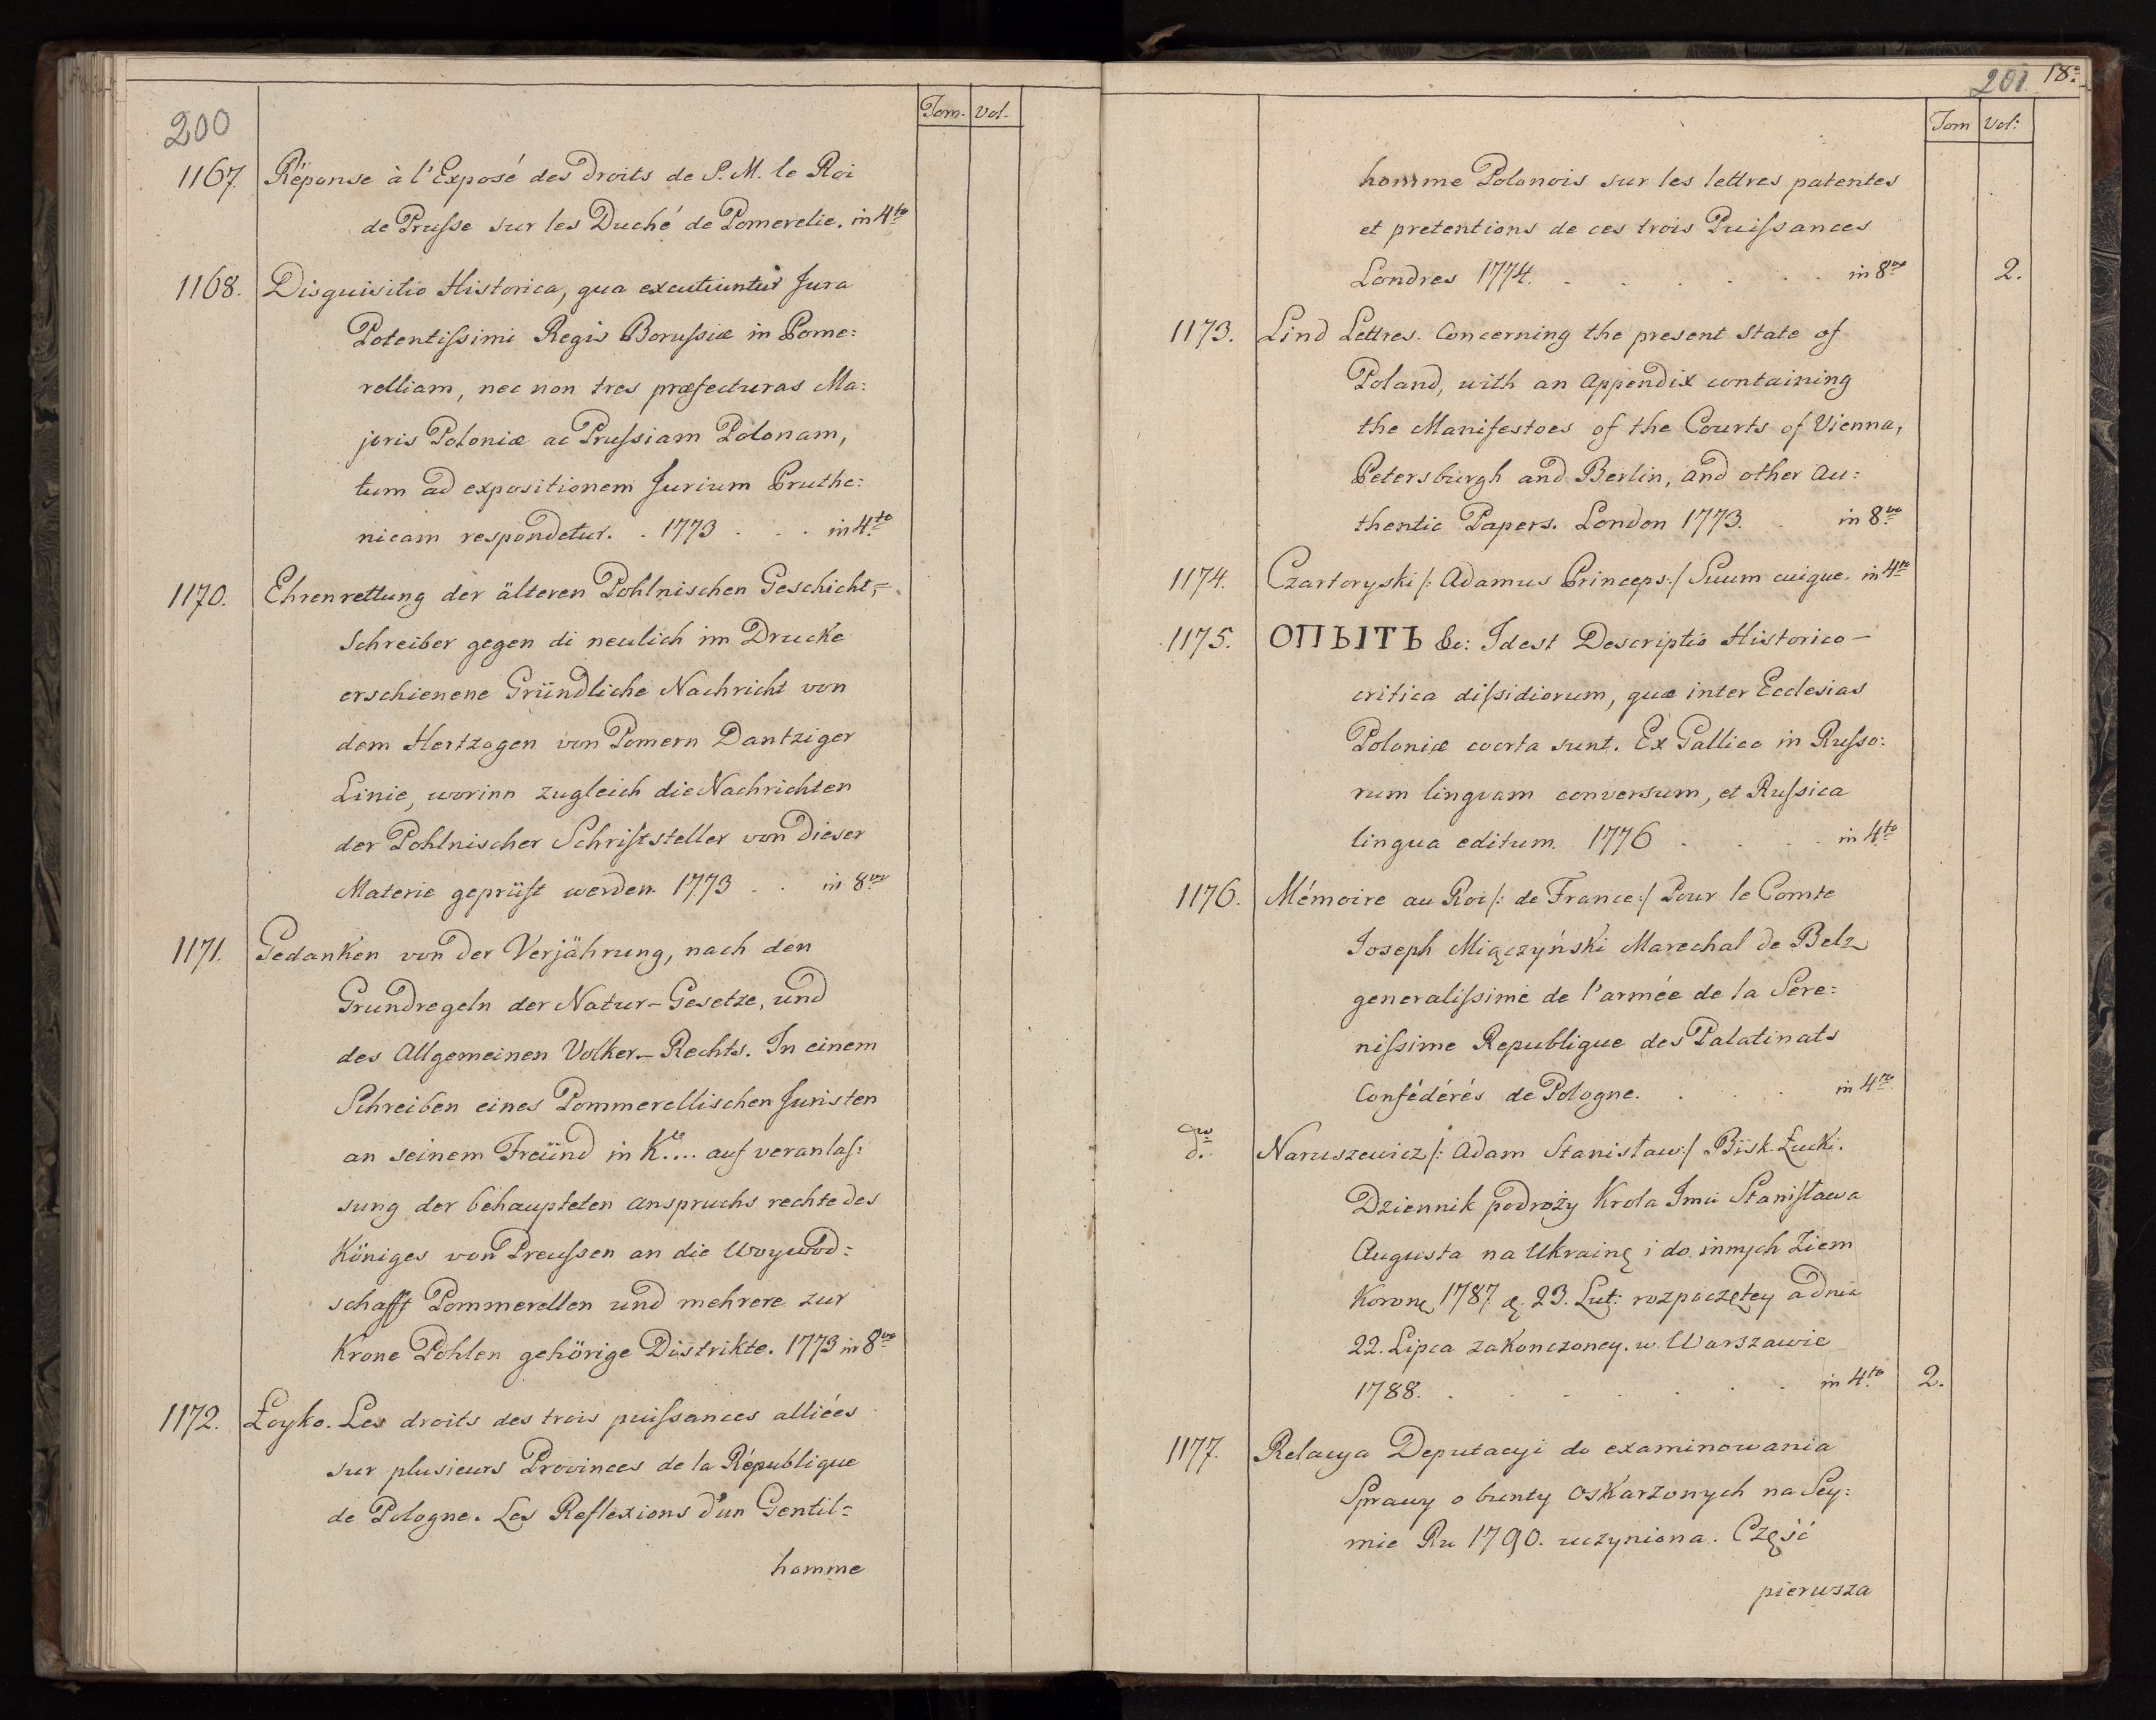 200
Tom. Vol.
1167. Réponse à l'Exposé des droits de S. M. le Roi
de Prusse sur les Duché de Pomerelie. in 4to
1168. Disquisitio Historica, qua excutiuntur Jura
Potentissimi Regis Borussiæ in Pome:
relliam, nec non tres præfecturas Ma:
joris Poloniæ ac Prussiam Polonam,
tum ad expositionem Jurium Pruthe:
nicam respondetur. . 1773 . . . in 4to
1170. Ehrenrettung der älteren Pohlnischen Geschicht,=
schreiber gegen di neulich im Drucke
erschienene Gründliche Nachricht von
dem Hertzogen von Pomern Dantziger
Linie, worinn zugleich die Nachrichten
der Pohlnischer Schriftsteller von dieser
Materie geprüft werden. 1773 . . in 8vo
1171. Gedanken von der Verjährung, nach den
Grundregeln der Natur-Gesetze, und
des Allgemeinen Volker-Rechts. In einem
Schreiben eines Pommerellischen Juristen
an seinem Freünd in K.... auf veranlas:
sung der behaupteten anspruchs rechte des
Königes von Preussen an die Woywod:
schafft Pommerellen und mehrere zur
Krone Pohlen gehörige Distrikte. 1773 in 8vo
1172. Łoyko. Les droits des trois puissances alliées
sur plusieurs Provinces de la République
de Pologne. Les Reflexions d'un Gentil=
homme
201. 18.
Tom Vol:
homme Polonois sur les lettres patentes
et pretentions de ces trois Puissances
Londres 1774. . . . . . . in 8vo 2.
1173. Lind Lettres. Concerning the present State of
Poland, with an Appendix containing
the Manifestoes of the Courts of Vienna,
Petersburgh and Berlin, and other Au:
thentic Papers. London 1773. . in 8vo
1174. Czartoryski /: Adamus Princeps:/ Suum cuique. in 4to
1175. ОПЫТЪ &c: Idest Descriptio Historico-
critica dissidiorum, quæ inter Ecclesias
Poloniæ coorta sunt. Ex Gallico in Russo:
rum lingvam conversum, et Russica
lingua editum. 1776 . . . . in 4to
1176. Mémoire au Roi /: de France:/ Pour le Comte
Joseph Miączyński Marechal de Belz
generalissime de l'armée de la Sere:
nissime Republique des Palatinats
Confédérés de Pologne. . . . in 4to
do. Naruszewicz /: Adam Stanisław:/ Bisk. Łucki.
Dziennik podroży Krola Jmci Stanisława
Augusta na Ukrainę i do innych Ziem
Koronę 1787. d. 23. Lut: rozpoczętey a dnia
22. Lipca zakonczoney. w Warszawie
1788. . . . . . . . in 4to 2.
1177. Relacya Deputacyi do examinowania
Sprawy o bunty oskarzonych na Sey:
mie Ru 1790. uczyniona. Część
pierwsza